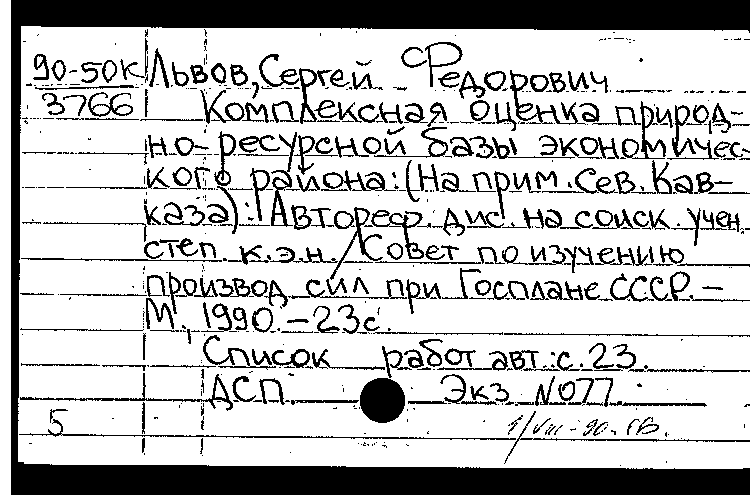 90-50К Львов, Сергей Федорович
3766 Комплексная оценка природ-
но-ресурсной базы экономичес-
кого района: (На прим. Сев. Кав-
каза): Автореф. дис. на соиск. учен.
степ. к.э.н. / Совет по изучению
производ. сил при Госплане СССР. –
М., 1990. – 23с.
Список работ авт.: с. 23.
ДСП. Экз. N077.
5 1/VIII-90. ГВ.